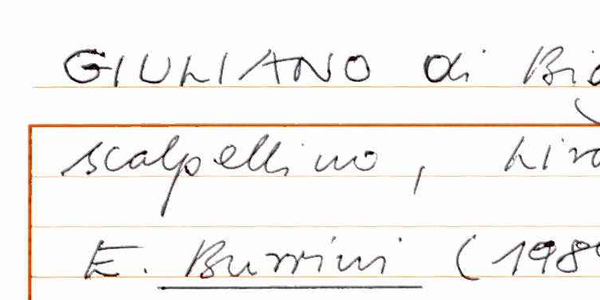 GIULIANO di
scalpellino,
E. Burrini (198